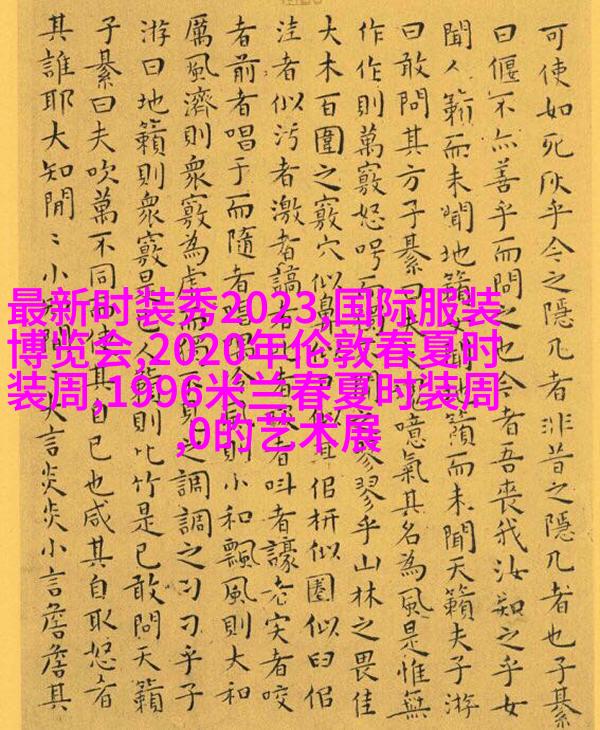 可使如死灰乎今之隱几者非昔之隱几者也子綦
曰偃不亦善乎而問之也今者吾喪我汝知之乎女
聞人籟而未聞地籟女聞地籟而未聞天籟夫子游
曰敢問其方子綦曰夫大塊噫氣其名為風是惟無
作作則萬竅怒呺而獨之翏翏乎山林之畏佳
大木百圍之竅穴似鼻似枅似圈似臼似
洼者似污者激者謞者者叫者譹者宎者咬
者前者唱于而隨者唱則小和飄風則大和
厲風濟則衆竅為虛而獨見之調調之刁刁乎子
游曰地籟則衆竅是已人籟則比竹是已敢問天籟
子綦曰夫吹萬不同而使其自已也咸其自取怒者
其誰耶大知閒〻小大言炎炎小言詹詹其
最新时装秀2023,国际服装
博览会,2020年伦敦春夏时
装周,1996米兰春夏时装周
,0的艺术展